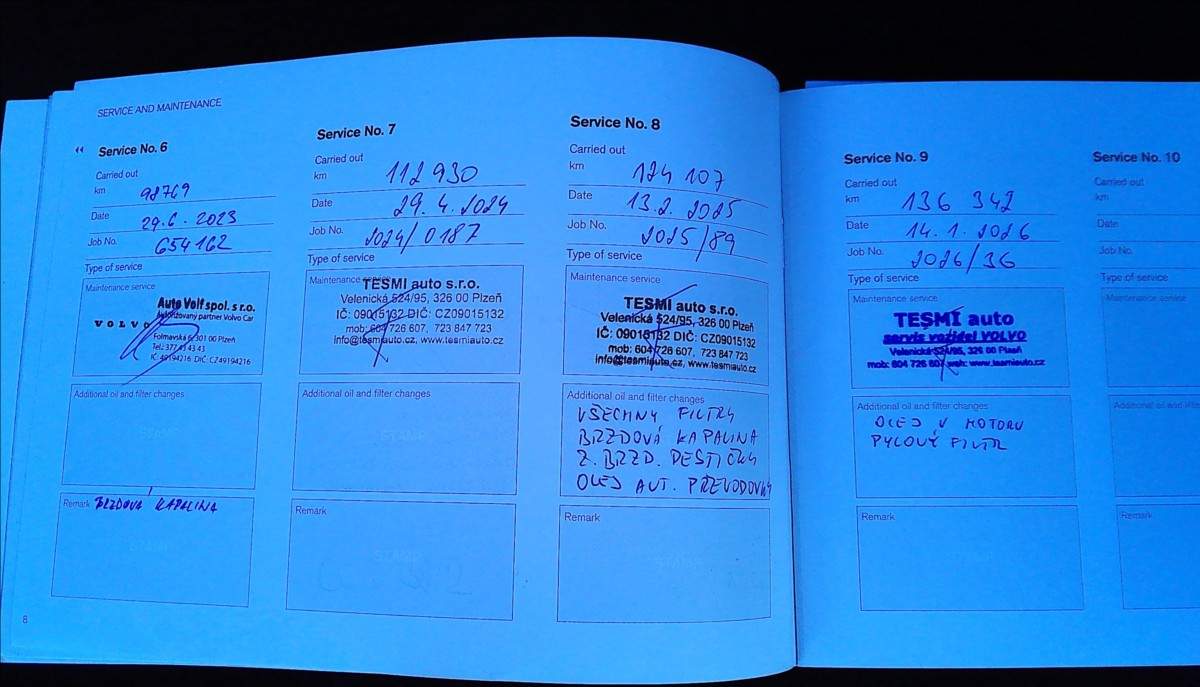 SERVICE AND MAINTENANCE
Service No. 6
Carried out
km 98769
Date 29.6. 2023
Job No. 654162
Type of service
Maintenance service
Auto Volf spol. s r.o.
Autorizovaný partner Volvo Car
VOLVO
Folmavská 6, 301 00 Plzeň
Tel.: 377 43 43 43
IČ: 49194216 DIČ: CZ49194216
Additional oil and filter changes
Remark BRZDOVA KAPALINA
8
Service No. 7
Carried out
km 112 930
Date 29. 4. 2024
Job No. 2024/0187
Type of service
Maintenance service
TESMI auto s.r.o.
Velenická 524/95, 326 00 Plzeň
IČ: 09015132 DIČ: CZ09015132
mob: 604 726 607, 723 847 723
info@tesmiauto.cz, www.tesmiauto.cz
Additional oil and filter changes
STAMP
Remark
Service No. 8
Carried out
km 124 107
Date 13.2. 2025
Job No. 2025/89
Type of service
Maintenance service
TESMI auto s.r.o.
Velenická 524/95, 326 00 Plzeň
IČ: 09015132 DIČ: CZ09015132
mob: 604 726 607, 723 847 723
info@tesmiauto.cz, www.tesmiauto.cz
Additional oil and filter changes
VŠECHNY FILTRY
BRZDOVÁ KAPALINA
Z. BRZD. DESTIČKY
OLEJ AUT. PŘEVODOVKY
Remark
Service No. 9
Carried out
km 136 342
Date 14. 1. 2026
Job No. 2026/36
Type of service
Maintenance service
TESMI auto
servis vozidel VOLVO
Velenická 524/95, 326 00 Plzeň
mob: 604 726 607 web: www.tesmiauto.cz
Additional oil and filter changes
OLEJ V MOTORU
PYLOVÝ FILTR
Remark
Service No. 10
Carried out
km
Date
Job No.
Type of service
Maintenance service
Additional oil and
Remark